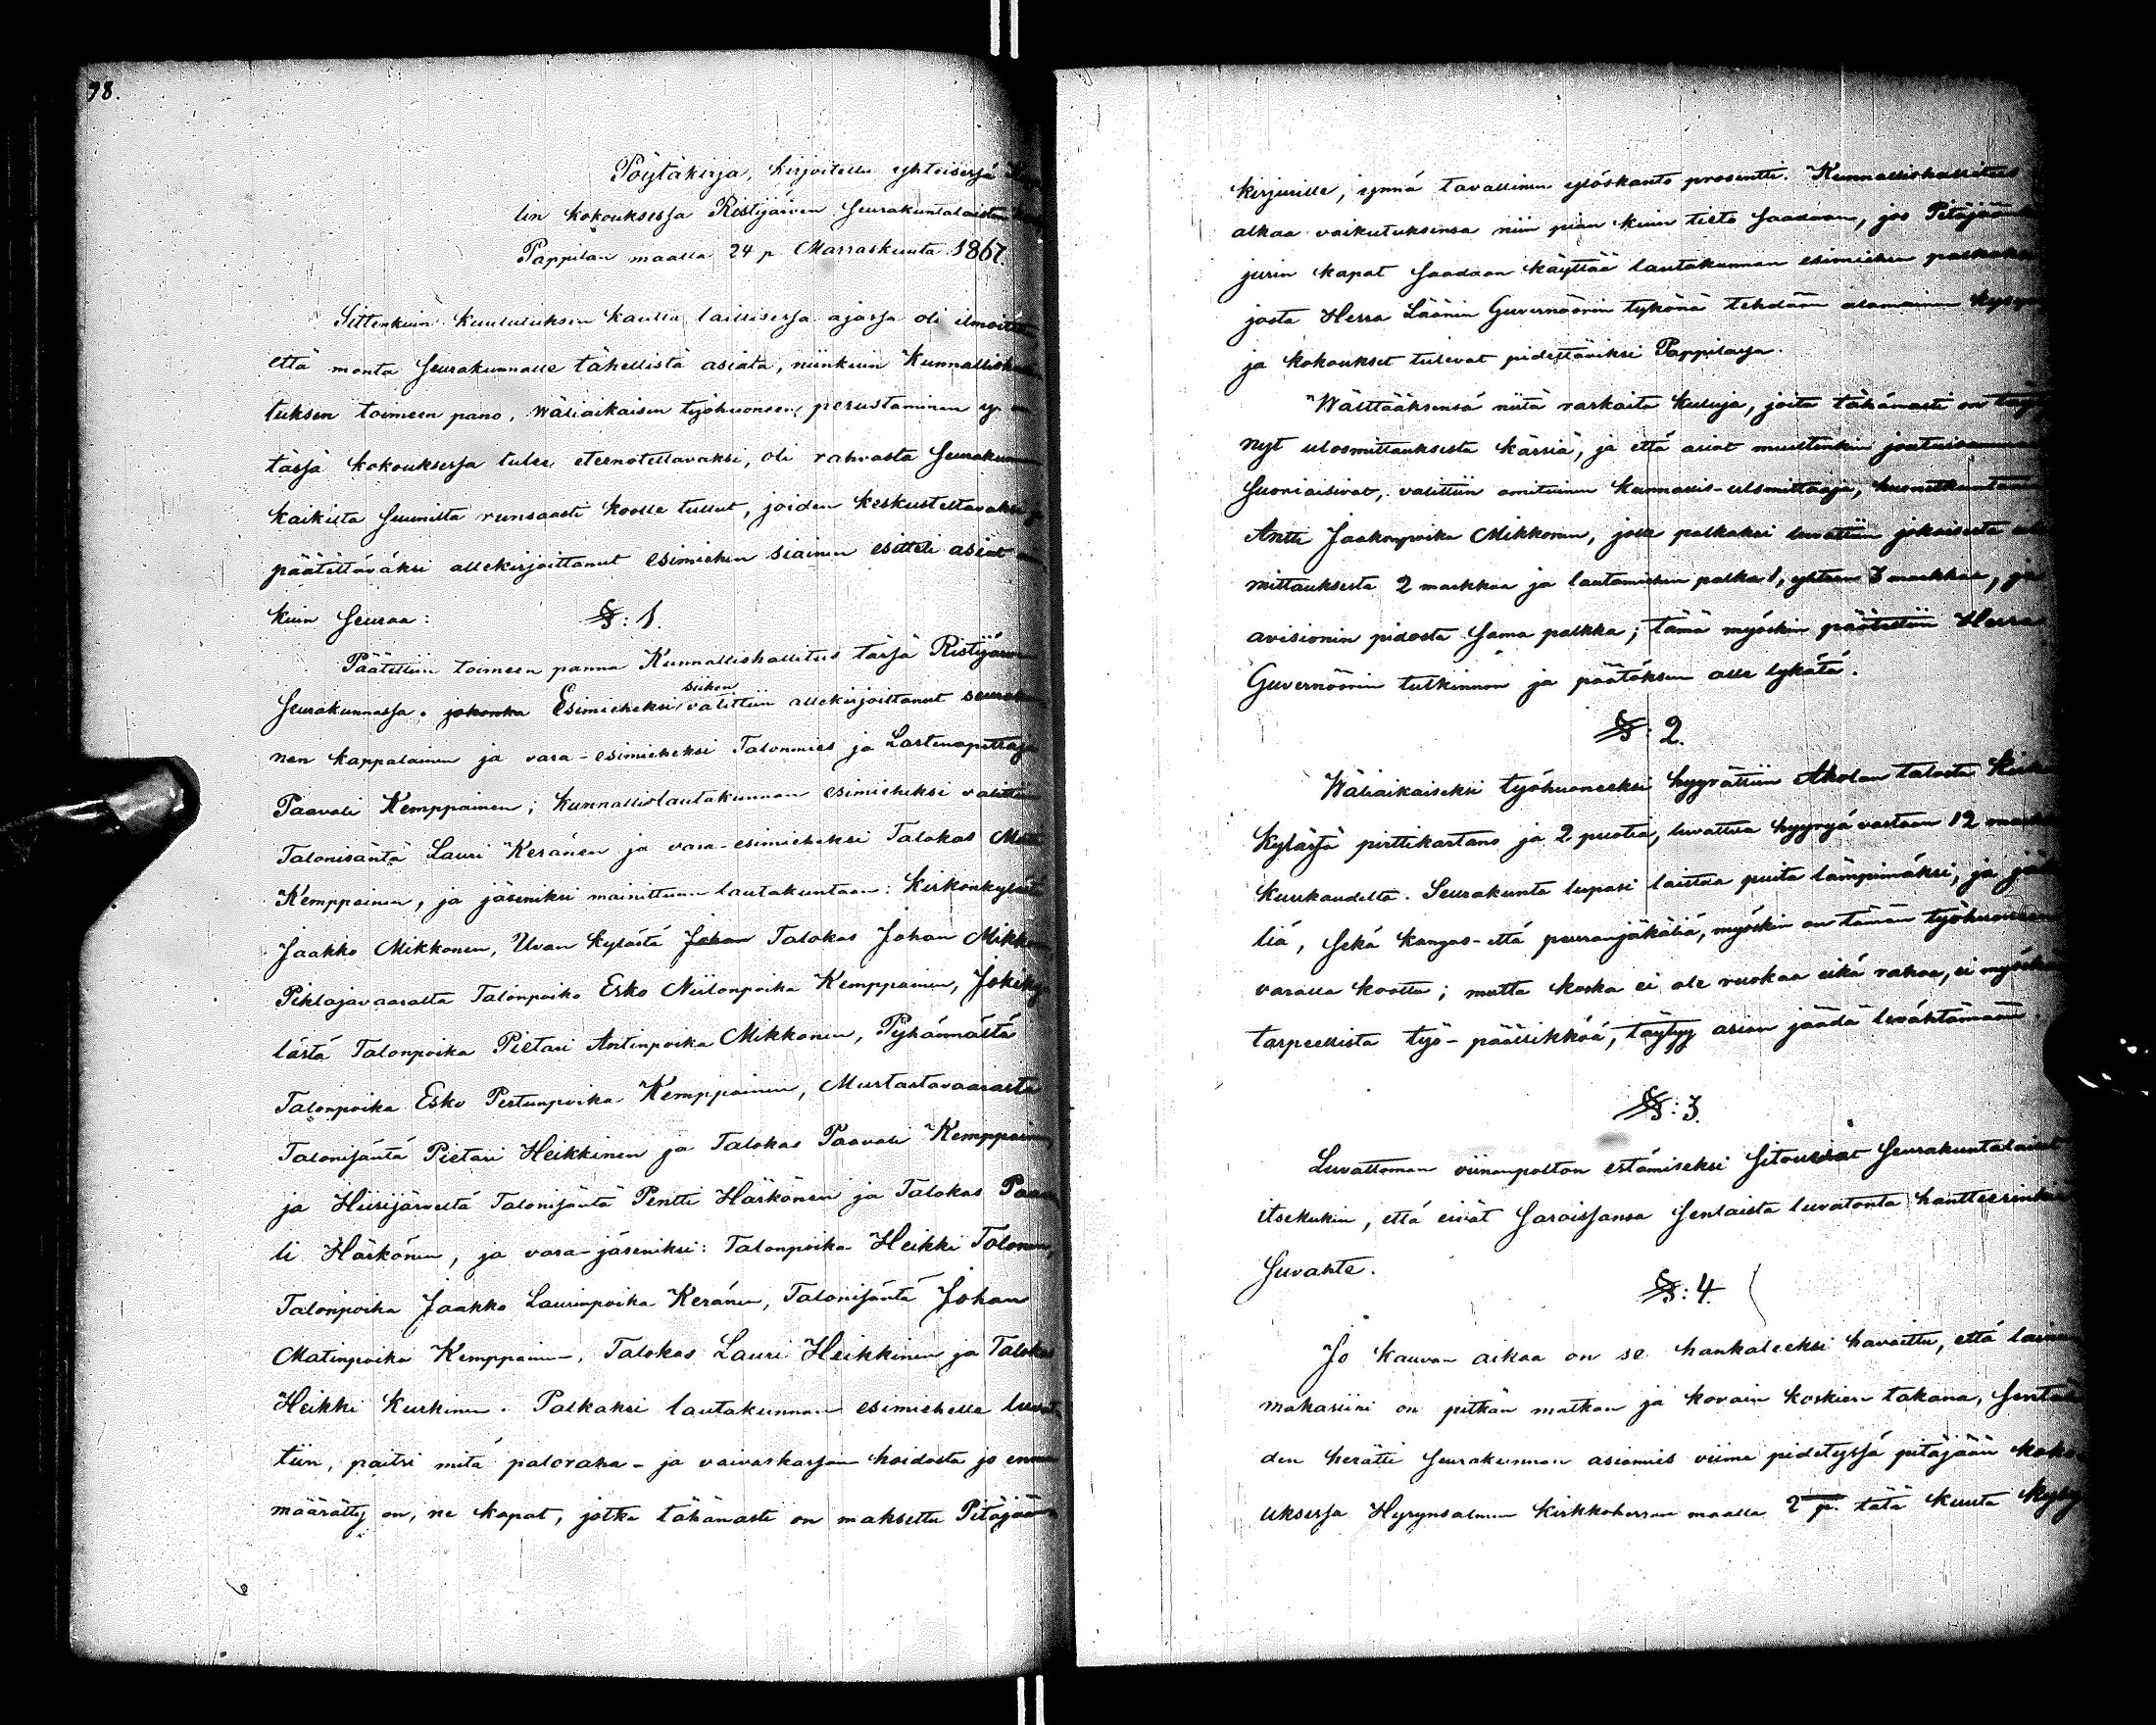 98.
Pöytäkirja, kirjoitettu yhteisessä
lin kokouksessa Ristijärven Seurakuntalaisten
Pappilan maalla 24 p Marraskuuta 1867.
Sittenkuin kuulutuksen kautta laillisessa ajassa oli ilmoitettu,
että monta Seurakunnalle tähellistä asiata, niinkuin Kunnallishalli
tuksen toimeen pano, Wäliaikaisen työhuoneen perustaminen y.
tässä kokouksessa tulee eteenotettavaksi, oli rahvasta Seurakunnan
kaikilta suunnilta runsaasti koolle tullut, joiden keskusteltavaksi ja
päätettäväksi allekirjoittanut esimiehen siainen esitteli asiat
kuin seuraa:
§: 1.
Päätettiin toimeen panna Kunnallishallitus tässä Ristijärven
Seurakunnassa. johonka Esimieheksi siihen valittiin allekirjoittanut seurakun
nan kappalainen ja vara-esimieheksi Talonmies ja Lastenopettaja
Paavali Kemppainen; Kunnallislautakunnan esimieheksi valittiin
Talonisäntä Lauri Keränen ja vara-esimieheksi Talokas Matti
Kemppainen, ja jäseniksi mainittuun lautakuntaan: Kirkonkylästä
Jaakko Mikkonen, Uvan kylästä Johan Talokas Johan Mikkonen
Pihlajavaaralta Talonpoika Esko Niilonpoika Kemppainen, Jokiky
lästä Talonpoika Pietari Antinpoika Mikkonen, Pyhännästä
Talonpoika Esko Pertunpoika Kemppainen, Mustastavaarasta
Talonisäntä Pietari Heikkinen ja Talokas Paavali Kemppainen
ja Hiisijärveltä Talonisäntä Pentti Härkönen ja Talokas Paava
li Härkönen, ja vara-jäseniksi: Talonpoika Heikki Tolonen,
Talonpoika Jaakko Laurinpoika Keränen, Talonisäntä Johan
Matinpoika Kemppainen, Talokas Lauri Heikkinen ja Talokas
Heikki Kurkinen. Palkaksi lautakunnan esimiehelle luvat
tiin, paitsi mitä paloraha- ja vaivaskassan hoidosta jo ennen
määrätty on, ne kapat, jotka tähänasti on maksettu Pitäjään
kirjurille, ynnä tavallinen ylöskanto prosentti. Kunnallishallitus
alkaa vaikutuksensa niin pian kuin tieto saadaan, jos Pitäjään
jurin kapat saadaan käyttää lautakunnan esimiehen palkaksi
josta Herra Läänin Guvernöörin tykönä tehdään alamainen kysymys
ja kokoukset tulevat pidettäviksi Pappilassa.
Wälttääksensä niitä raskaita kuluja, joita tähänasti on täyty
nyt ulosmittauksesta kärsiä, ja että asiat muuttenkin joutuisammin
suoriaisivat, valittiin omituinen Kunnallis-ulosmittaaja,
Antti Jaakonpoika Mikkonen, jolle palkaksi luvattiin jokaisesta ulos
mittauksesta 2 markkaa ja lautamiehen palka 1, yhteen 3 markkaa, ja
avisionin pidosta sama palkka; tämä myöskin päätettiin Herra
Guvernöörin tutkinnon ja päätöksen alle lykätä.
§: 2.
Wäliaikaiseksi työhuoneeksi hyyrättiin Aholan talosta Kirkon
kylässä pirttikartano ja 2 puotia, luvattua hyyryä vastaan 12 markkaa
Kuukaudelta. Seurakunta lupasi laittaa puita lämpimäksi, ja jäkä
liä, sekä kangas- että peuranjäkäliä, myöskin on tämän työhuoneen
varalla koottu; mutta koska ei ole ruokaa eikä rahaa, ei myöskään
tarpeellista työ-päällikköä, täytyy asian jäädä levähtämään.
§: 3.
Luvattoman viinanpolton estämiseksi sitousivat Seurakuntalaiset
itsekukin, että eivät saroissansa senlaista luvatonta hantteerinkia
suvahte.
§: 4.
Jo kauvan aikaa on se hankaleeksi havaittu, että laina
makasiini on pitkän matkan ja kovain koskien takana, sentäh
den herätti Seurakunnan asiamies viime pidetyssä pitäjään koko
uksessa Hyrynsalmen Kirkkoherran maalla 2 p. tätä kuuta